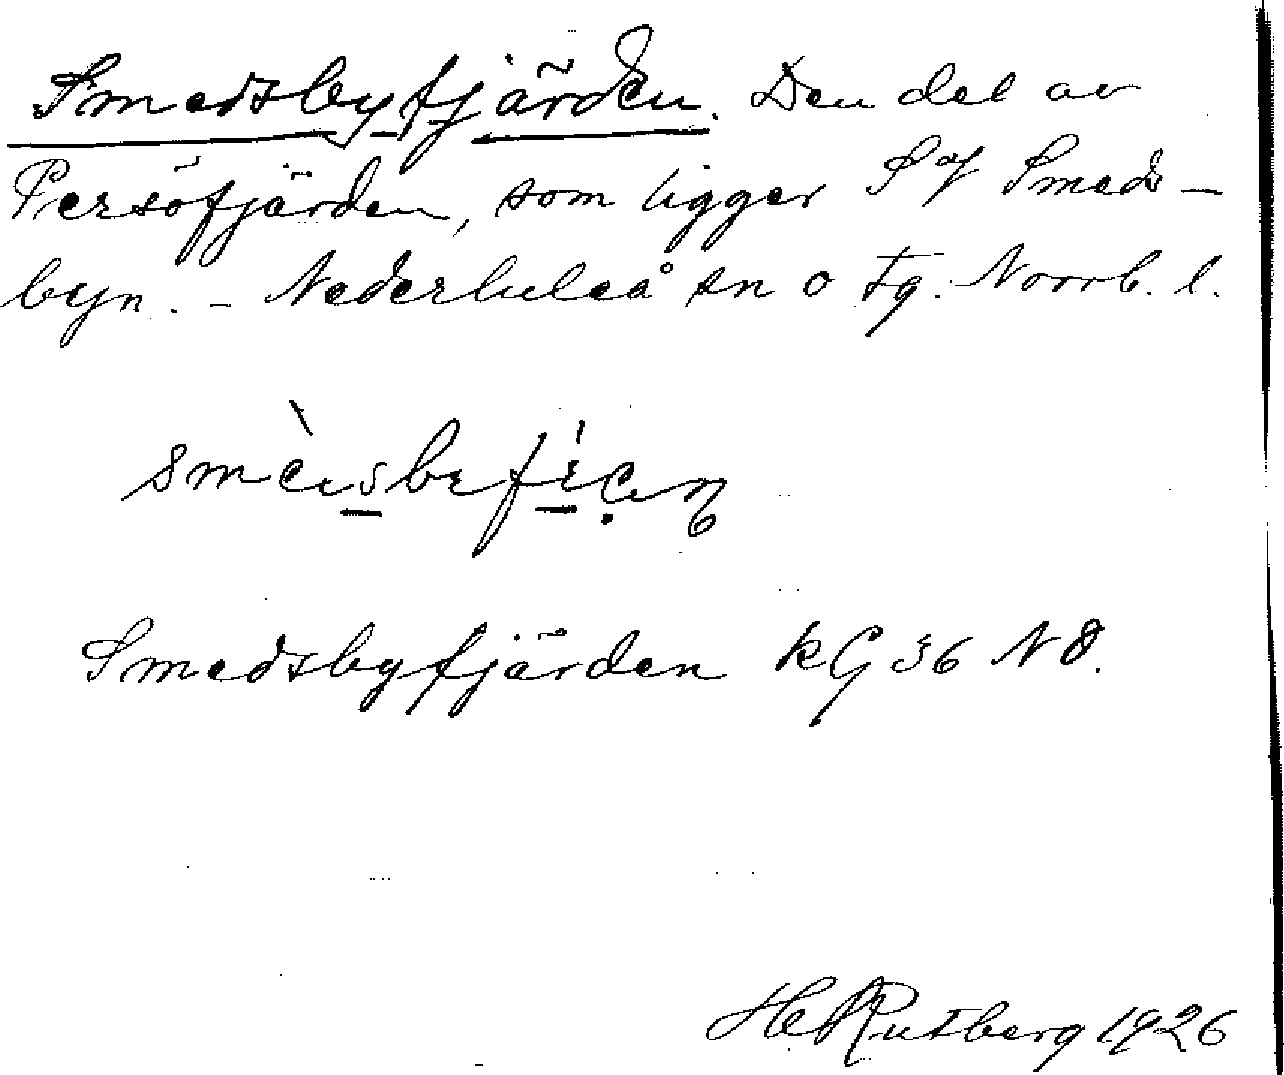 Smedsbyfjärden. Den del av
Persöfjärden, som ligger S of Smeds-
byn. - Nederluleå sn o tg. Norrb. l.
Smedsbyfjärden KG 36 NO.
H. Rutberg 1926